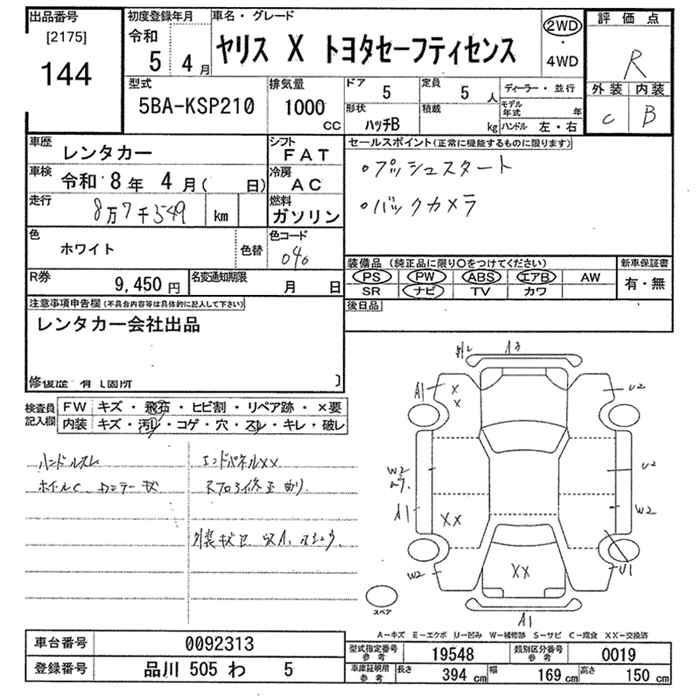 出品番号
[2175]
144
初度登録年月
令和
5 4月
車名・グレード
ヤリス X トヨタセーフティセンス
2WD
・
4WD
評価点
R
外装 内装
C B
型式
5BA-KSP210
排気量
1000
CC
ドア
5
定員
5 人
形状
ハッチB
積載
kg
ディーラー・並行
モデル年式 年
ハンドル 左・右
車歴
レンタカー
シフト
FAT
車検
令和 8年 4月( 日)
冷房
AC
走行
8万7千549 km
燃料
ガソリン
色
ホワイト
色替
色コード
040
R券
9,450円
名変通知期限
月 日
セールスポイント(正常に機能するものに限ります)
○プッシュスタート
○バックカメラ
装備品(純正品に限り○をつけてください)
PS PW ABS エアB AW
SR ナビ TV カワ
新車保証書
有・無
後日品
注意事項申告欄(不具合内容等は具体的に記入して下さい)
レンタカー会社出品
修復歴 有〔箇所 〕
検査員
記入欄
FW キズ・飛石・ヒビ割・リペア跡・×要
内装 キズ・汚レ・コゲ・穴・スレ・キレ・破レ
ハンドルスレ
エンドパネルXX
A3
A1
X
X
U2
W2
U2
A1
XX
W2
W2
XX
U1
A1
スペア
A－キズ E－エクボ U－凹み W－補修跡 S－サビ C－腐食 XX－交換済
車台番号
0092313
登録番号
品川 505 わ 5
型式指定番号
参考
19548
類別区分番号
参考
0019
車庫証明用
参考
長さ
394 cm
幅
169 cm
高さ
150 cm